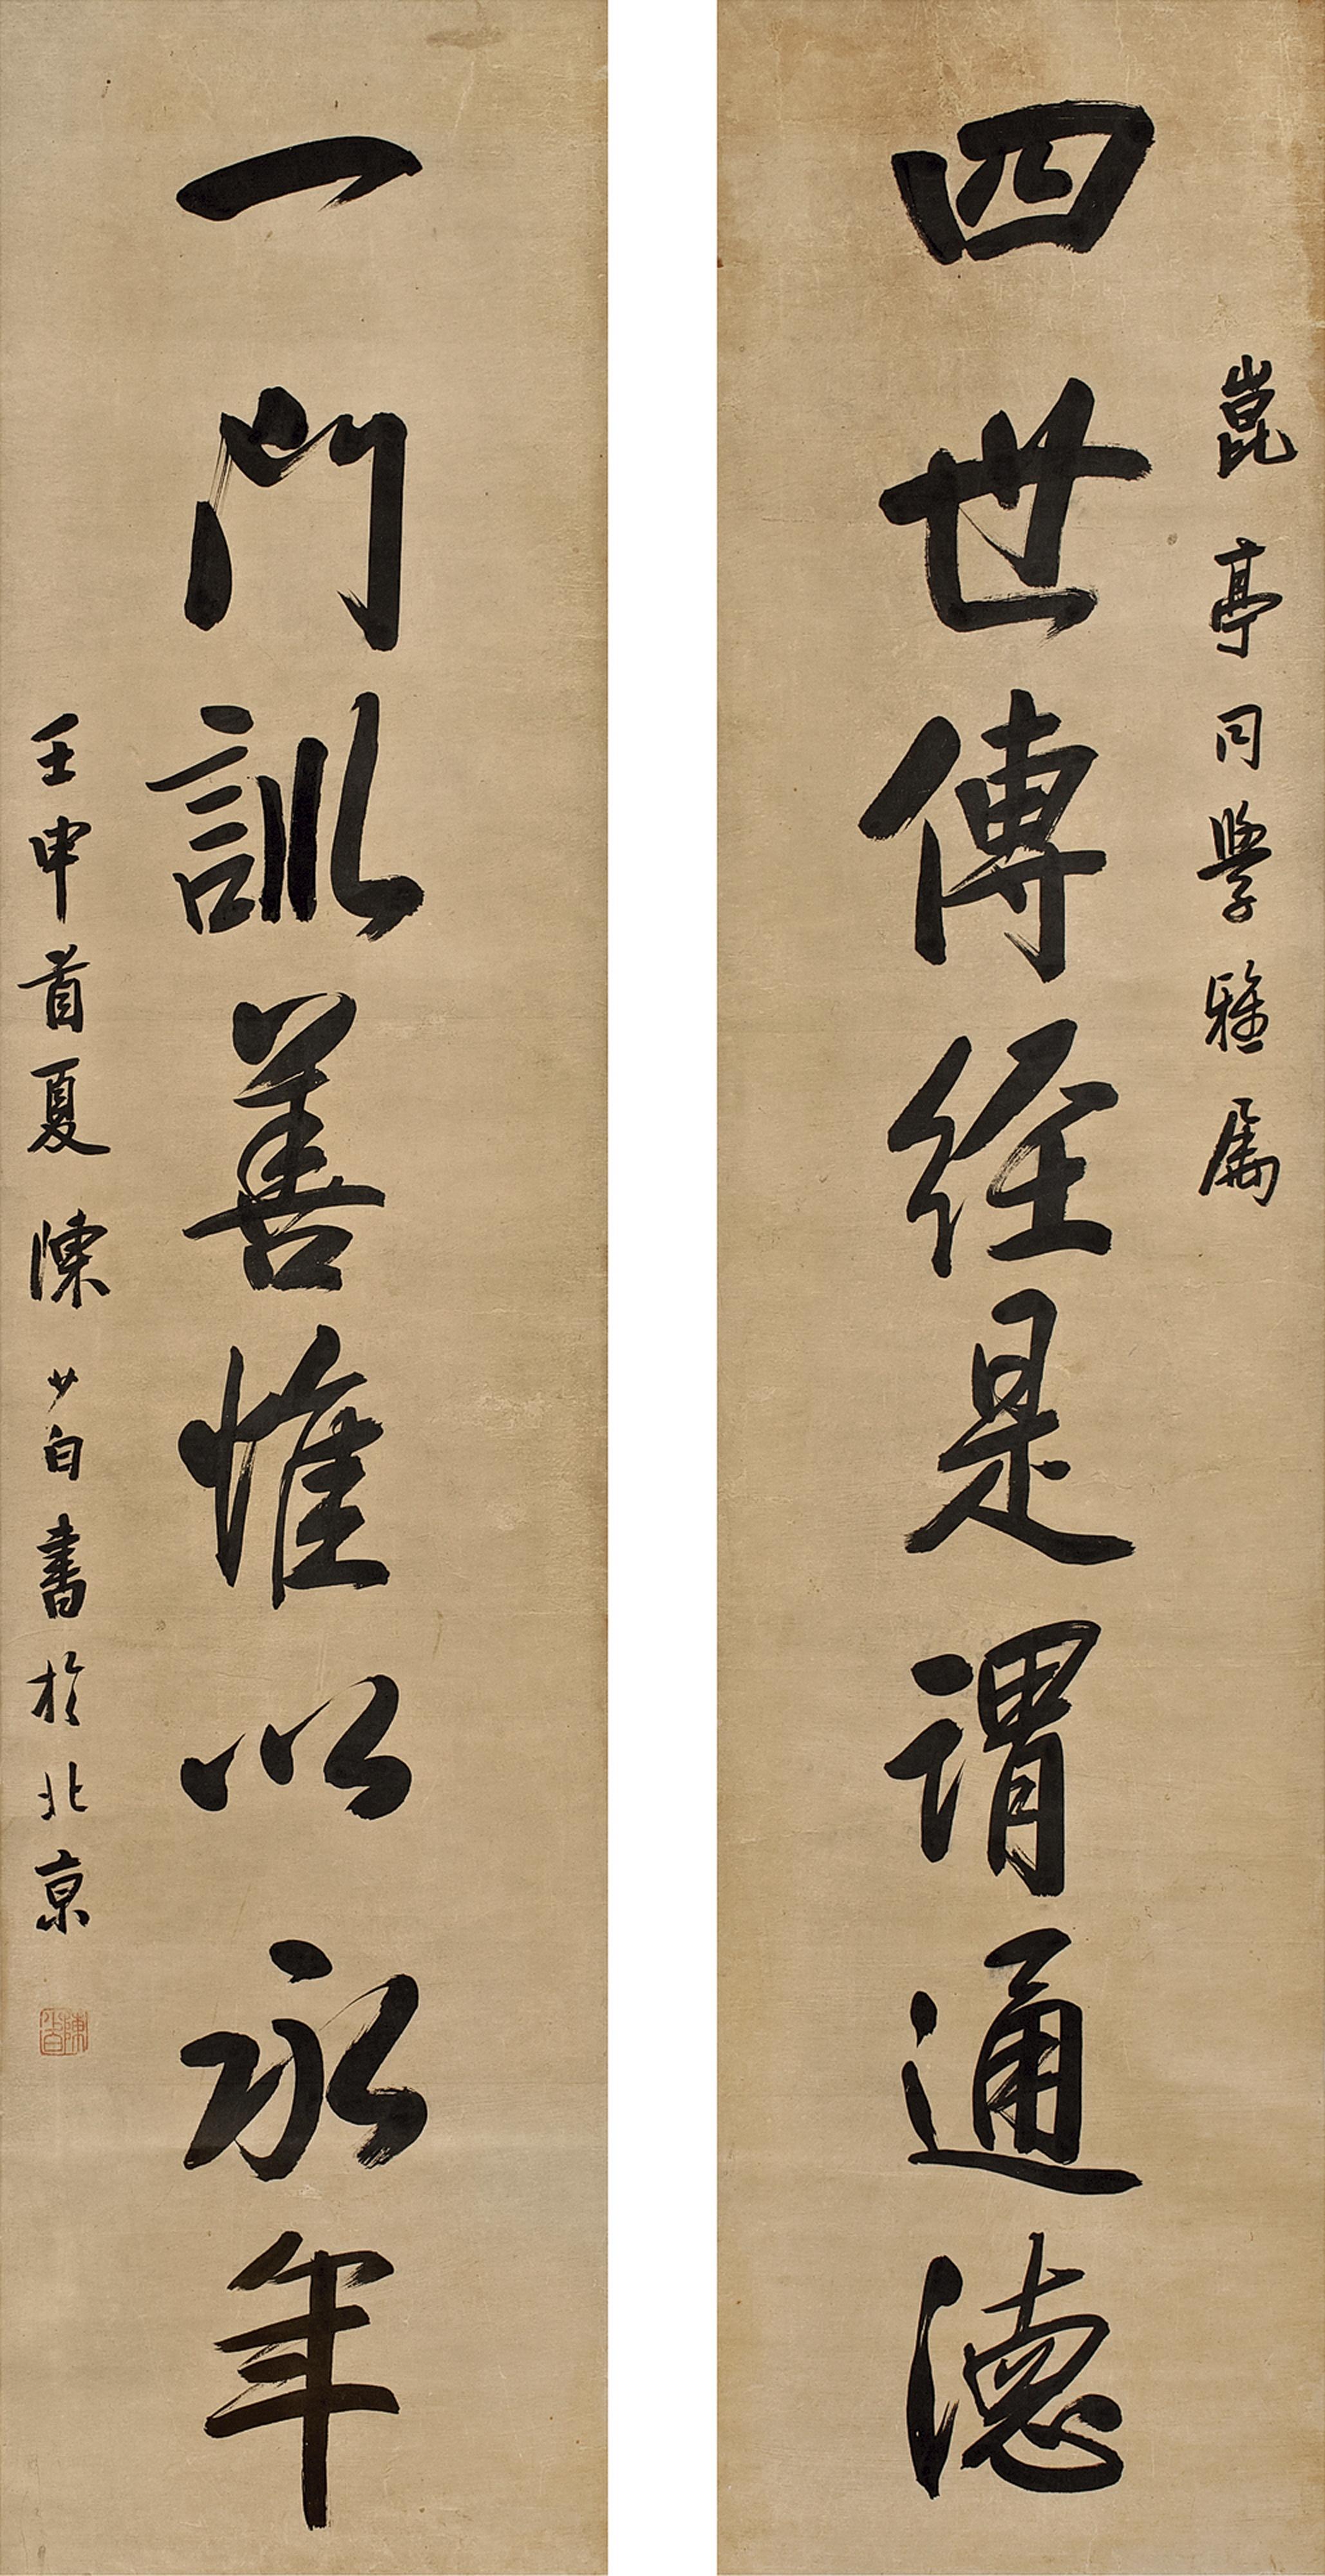 崑亭同學雅屬
四世傳經是謂通德
一門訓善惟以永年
壬申首夏陳少白書於北京
陳少白